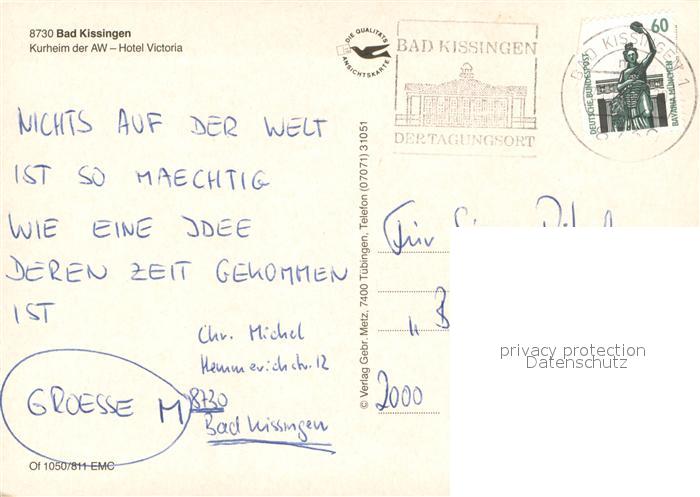 8730 Bad Kissingen
Kurheim der AW – Hotel Victoria
DIE QUALITÄTS
ANSICHTSKARTE
BAD KISSINGEN
DER TAGUNGSORT
BAD KISSINGEN 1
60
DEUTSCHE BUNDESPOST
BAVARIA MÜNCHEN
NICHTS AUF DER WELT
IST SO MAECHTIG
WIE EINE IDEE
DEREN ZEIT GEKOMMEN
IST
GROESSE M
Chr. Michel
Hemmerichstr. 12
8730
Bad Kissingen
Of 1050/811 EMC
© Verlag Gebr. Metz, 7400 Tübingen, Telefon (07071) 31051
Für
" B
2000
privacy protection
Datenschutz